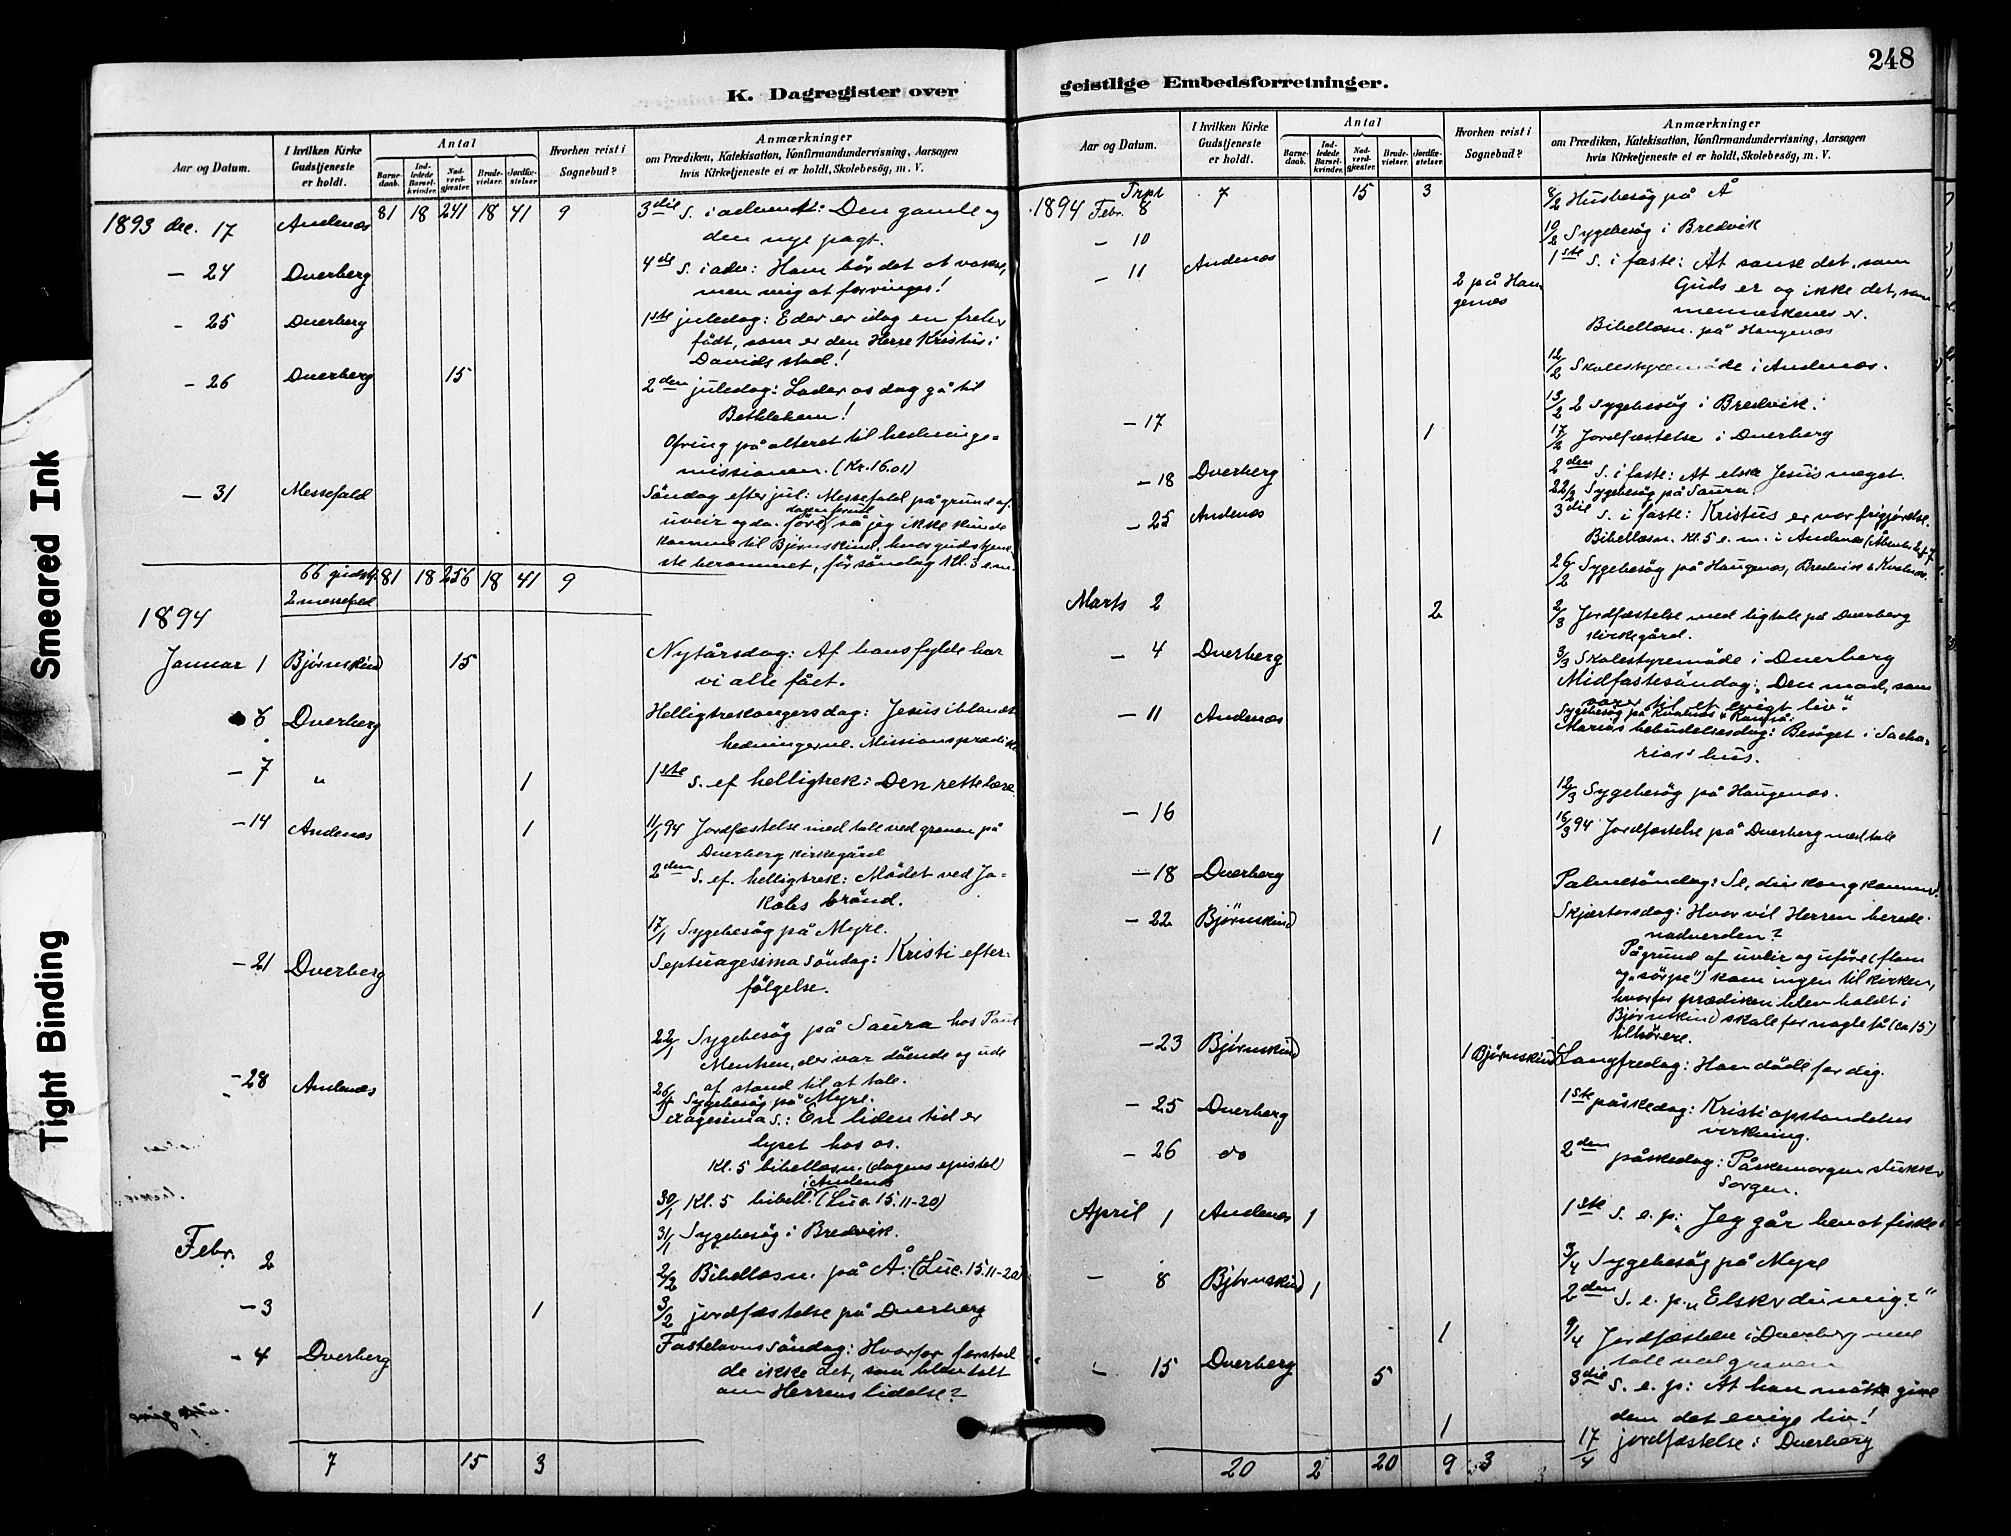 Smeared Ink
Tight Binding
K. Dagregister over
Aar og Datum.
I hvilken Kirke Gudstjeneste er holdt.
Antal
Barnedaab.
Indledede Barselkvinder.
Nadverdgjester.
Brudevielser.
Jordfæstelser.
Hvorhen reist i Sognebud?
Anmærkninger
om Prædiken, Katekisation, Konfirmandundervisning, Aarsagen
hvis Kirketjeneste ei er holdt, Skolebesög, m. V.
1893 dec. 17 Andenæs 81 18 241 18 41 9 3die S. i advent: Den gamle og
den nye pagt.
- 24 Dverberg 4de S. i adv: Ham bør det at vokse,
men mig at forringes!
- 25 Dverberg 1ste juledag: Eder er idag en frelser
födt, som er den Herre Kristus i
Davids stad!
- 26 Dverberg 15 2den juledag: Lader os dog gå til
Bethlehem!
Ofring på alteret til hedninge-
missionen. (Kr. 16.01)
- 31 Messefald Söndag efter jul: Messefald på grund af
uveir og da. föret så jeg ikke kunde
komme til Bjørnskind, hvor gudstjene-
ste berammet, för söndag kl. 3 em.
66 gudstj. 81 18 256 18 41 9
2 messefald
1894
Januar 1 Bjørnskind 15 Nytårsdag: Af hans fylde har
vi alle fået.
6 Dverberg Helligtrekongersdag: Jesus iblandt
hedningerne. Missionsprædik
- 7 " 1 1ste S. ef helligtrek: Den rette lære
- 14 Andenæs 1 11/1 94 Jordfæstelse med tale ved graven på
Dverberg kirkegård
2den S. ef. helligtrek: Mödet ved Ja-
kobs brönd.
17/1 Sygebesög på Myre.
- 21 Dverberg Septuagesima Söndag: Kristi efter-
fölgelse.
22/1 Sygebesög på Saura hos Paul
Menken, der var döende og ude
af stand til at tale.
- 28 Andenæs 26/1 Sygebesög på Myre.
Sexagesima S.: En liden tid er
lyset hos os.
Kl. 5 bibellæsn. (dagens epistel)
i Andenæs
30/1 Kl. 5 bibell. (Luc. 15.11-20)
31/1 Sygebesög i Bredvik.
Febr. 2 2/2 Bibellæsn. på Å. (Luc. 15.11-20)
- 3 1 3/2 jordfæstelse på Dverberg
- 4 Dverberg Fastelavns Söndag: Hvorfor forstod
de ikke det, som blev talt
om Herrens lidelse?
7 15 3
248
geistlige Embedsforretninger.
Aar og Datum.
I hvilken Kirke Gudstjeneste er holdt.
Antal
Barnedaab.
Indledede Barselkvinder.
Nadverdgjester.
Brudevielser.
Jordfæstelser.
Hvorhen reist i Sognebud?
Anmærkninger
om Prædiken, Katekisation, Konfirmandundervisning, Aarsagen
hvis Kirketjeneste ei er holdt, Skolebesög, m. V.
Trpt 7 15 3
1894 Febr. 8 8/2 Husbesög på Å
- 10 10/2 Sygebesög i Bredvik
- 11 Andenæs 1ste S. i faste: At sanse det, som
Guds er og ikke det, som
menneskenes er.
2 på Hau
genæs
Bibellæsn. på Haugenæs
12/2 Skolestyremöde i Andenæs.
13/2 2 Sygebesög i Bredvik.
- 17 1 17/2 Jordfæstelse i Dverberg
- 18 Dverberg 2den S. i faste: At elske Jesus meget.
22/2 Sygebesög på Saura.
- 25 Andenæs 3die S. i faste: Kristus er vor frigjörelse.
Bibellæsn. kl. 5 e. m. i Andenæs
26/2 Sygebesög på Haugenæs, Bredvik & Kvalnæs.
Marts 2 2 2/3 Jordfæstelse med ligtale på Dverberg
kirkegård.
- 4 Dverberg 3/3 Skolestyremöde i Dverberg
Midfastesöndag: "Den mad, som
varer til et evigt liv."
Sygebesög på Kvalnæs & Ramså.
- 11 Andenæs Mariæ bebudelsesdag: Besöget i Sacha-
rias' hus.
12/3 Sygebesög på Haugenæs.
- 16 1 16/3 94 Jordfæstelse på Dverberg med tale
- 18 Dverberg Palmesöndag: Se, din kong kommer.
- 22 Bjørnskind Skjærtorsdag: Hvor vil Herren berede
nadverden?
På grund af uveir og uföre (flom
og "sörpe") kom ingen til kirken,
hvorfor prædiken blev holdt i
Bjørnskind skole for nogle få (ca 15)
tilhörere.
- 23 Bjørnskind 1 Bjørnskind Langfredag: Han döde for dig.
- 25 Dverberg 1ste påskedag: Kristi opstandelses
virkning.
- 26 do 2den påskedag: Påskemorgen slukker
Sorgen.
April 1 Andenæs 1 1ste S. e. p.: Jeg går hen at fiske
3/4 Sygebesög på Myre
- 8 Bjørnskind 1 2den S. e. p. "Elsker du mig?"
1 9/4 Jordfæstelse i Dverberg med
tale ved graven
- 15 Dverberg 5 3die S. e. p: At han måtte give
dem det evige liv!
1 17/4 jordfæstelse i Dverberg
20 2 20 9 3